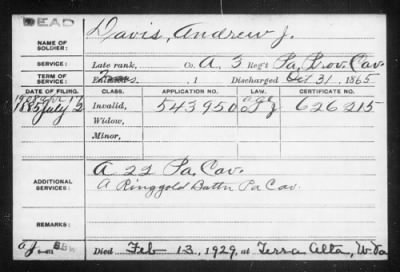 DEAD
NAME OF SOLDIER: Davis, Andrew J.
SERVICE: Late rank, Co. A, 3 Reg't Pa. Prov. Cav.
TERM OF SERVICE: , 1 Discharged Oct 31, 1865
DATE OF FILING. CLASS. APPLICATION NO. LAW. CERTIFICATE NO.
1885 July 2 Invalid, 543950 626215
Widow,
Minor,
ADDITIONAL SERVICES: A 22 Pa. Cav.
A Ringgold Battn Pa Cav.
REMARKS:
Died Feb 13, 1929, at Terra Alta, W. Va